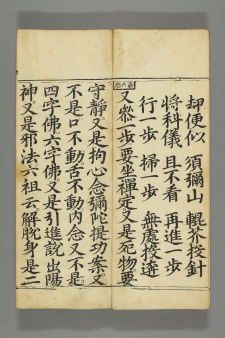 却便似 須彌山 輥芥投針
將科儀 且不看 再進一步
行一步 掃一步 無處投遶
又叅一步要坐禪定又是死物要
守靜又是拘心念彌陀提功案又
不是口不動舌不動内念又不是
四字佛六字佛又是引進說出陽
神又是邪法六祖云解脫身是二